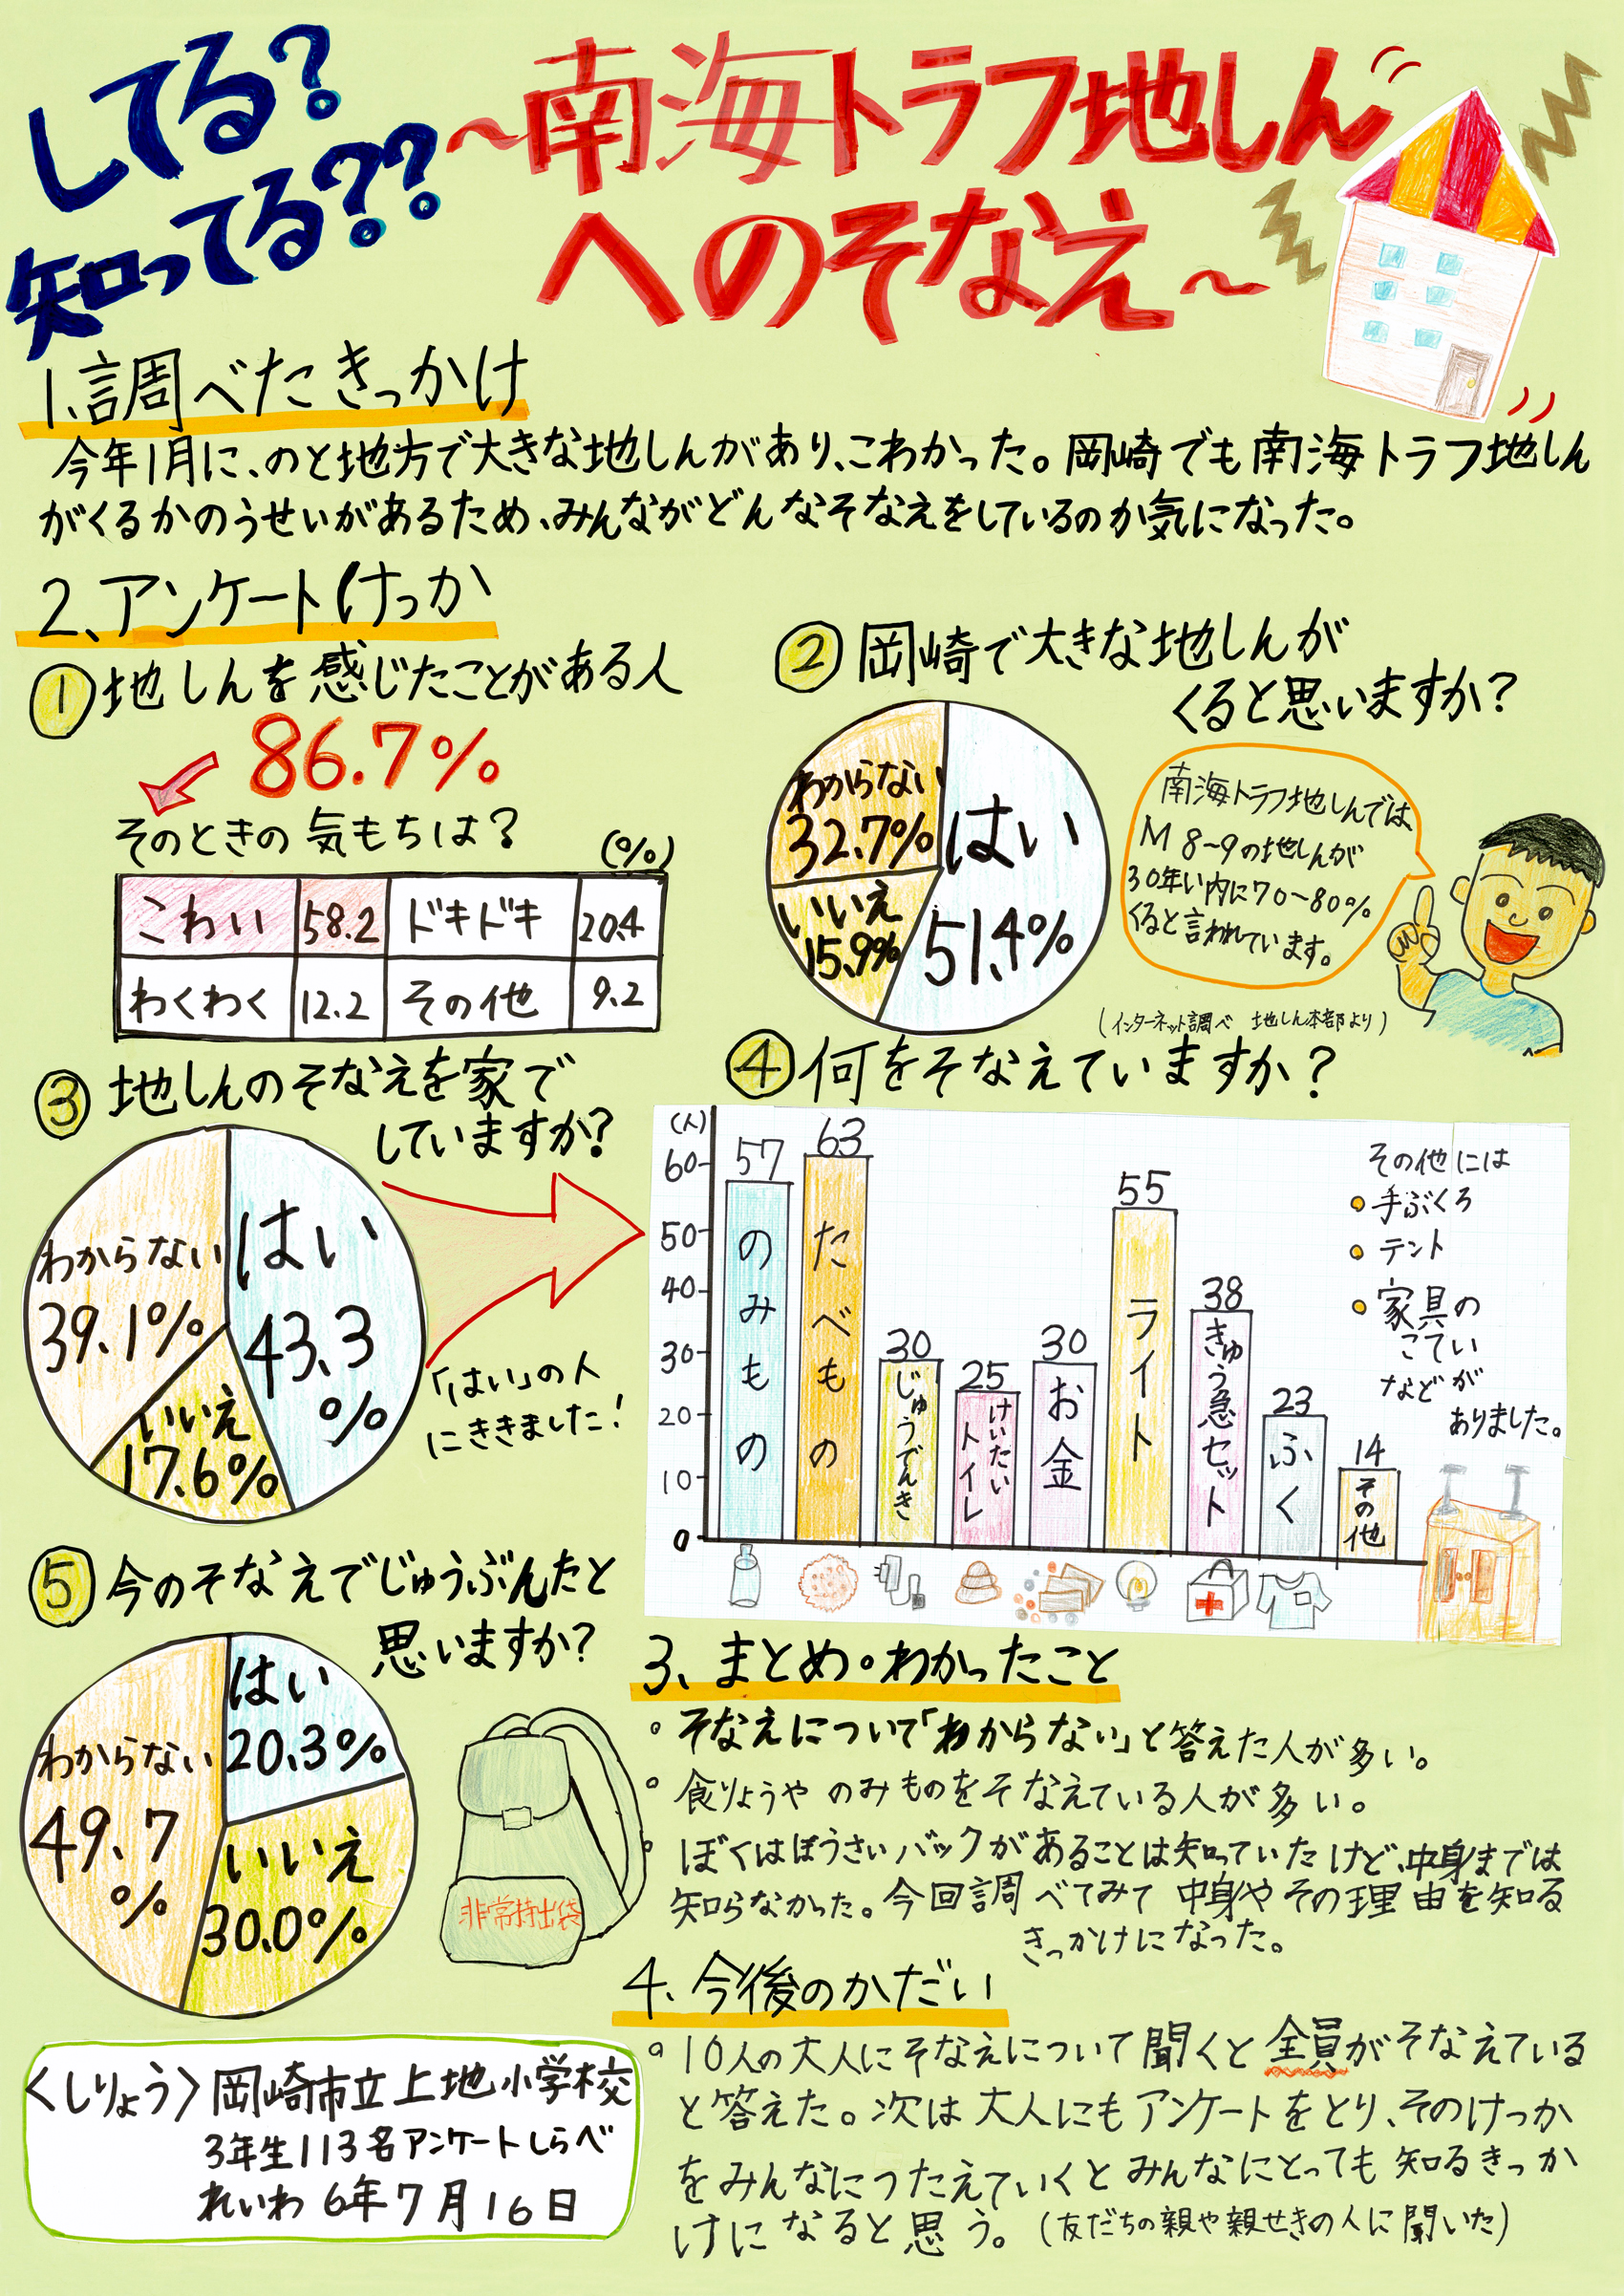 してる?
知ってる??
～南海トラフ地しん
へのそなえ～
1.調べたきっかけ
今年1月に、のと地方で大きな地しんがあり、こわかった。岡崎でも南海トラフ地しん
がくるかのうせいがあるため、みんながどんなそなえをしているのか気になった。
2.アンケートけっか
① 地しんを感じたことがある人
86.7%
そのときの気もちは?
(%)
こわい 58.2 ドキドキ 20.4
わくわく 12.2 その他 9.2
② 岡崎で大きな地しんが
くると思いますか?
わからない
32.7%
はい
51.4%
いいえ
15.9%
南海トラフ地しんでは
M 8~9の地しんが
30年い内に70~80%
くると言われています。
(インターネット調べ 地しん本部より)
③ 地しんのそなえを家で
していますか?
わからない
39.1%
はい
43.3
%
いいえ
17.6%
「はい」の人
にききました!
④ 何をそなえていますか?
(人)
60
50
40
30
20
10
0
57
のみもの
63
たべもの
30
じゅうでんき
25
けいたい
トイレ
30
お金
55
ライト
38
きゅう急セット
23
ふく
14
その他
その他には
手ぶくろ
テント
家具の
こてい
などが
ありました。
⑤ 今のそなえでじゅうぶんたと
思いますか?
わからない
49.7
%
はい
20.3%
いいえ
30.0%
非常持出袋
3、まとめ・わかったこと
。そなえについて「わからない」と答えた人が多い。
。食りょうや のみものをそなえている人が多い。
。ぼくはぼうさいバックがあることは知っていたけど、中身までは
知らなかった。今回調べてみて 中身やその理由を知る
きっかけになった。
4.今後のかだい
。10人の大人にそなえについて聞くと全員がそなえている
と答えた。次は大人にもアンケートをとり、そのけっか
をみんなにつたえていくとみんなにとっても知るきっか
けになると思う。(友だちの親や親せきの人に聞いた)
〈しりょう〉岡崎市立上地小学校
3年生113名アンケートしらべ
れいわ 6年7月16日